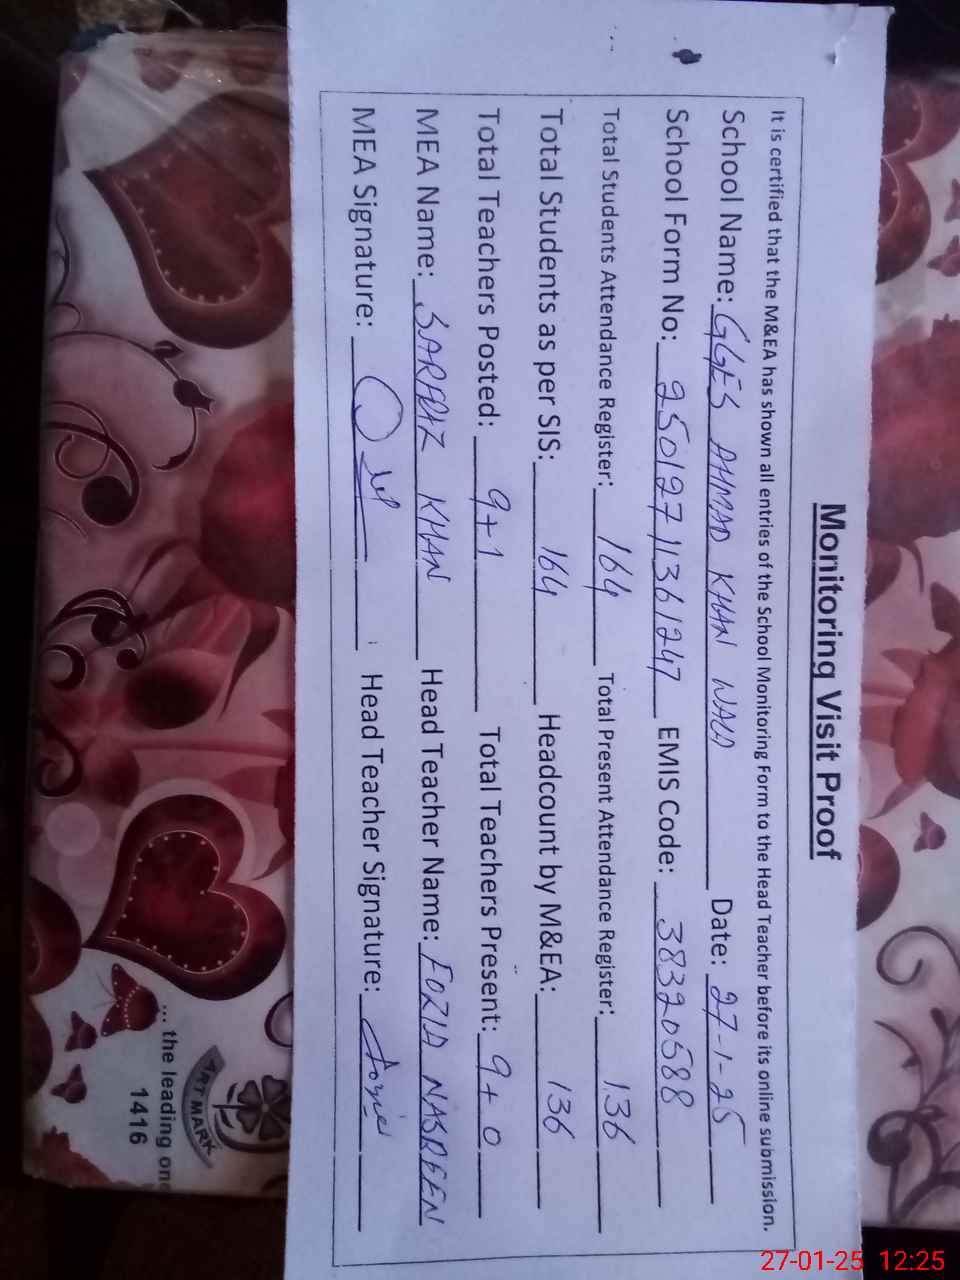 Monitoring Visit Proof
It is certified that the M&EA has shown all entries of the School Monitoring Form to the Head Teacher before its online submission.
School Name: GGES AHMAD KHAN WALA Date: 27-1-25
School Form No: 25012711361247 EMIS Code: 38320588
Total Students Attendance Register: 164 Total Present Attendance Register: 136
Total Students as per SIS: 164 Headcount by M&EA: 136
Total Teachers Posted: 9+1 Total Teachers Present: 9+0
MEA Name: SARFRAZ KHAN Head Teacher Name: FOZIA NASREEN
MEA Signature: Head Teacher Signature: Fozia
... the leading one
1416
ART MARK
27-01-25 12:25